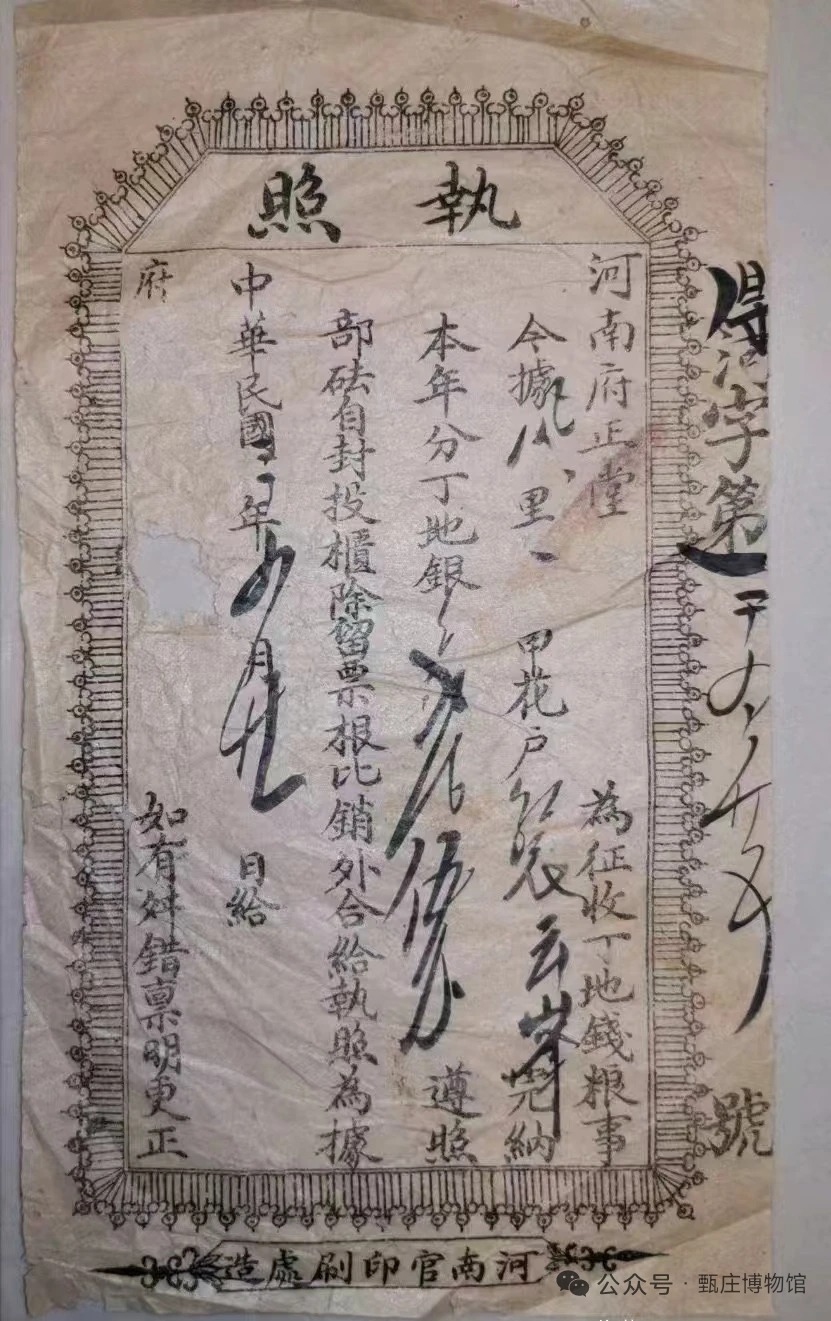 執照
字第
號
河南府正堂 為征收丁地錢粮事
今據 里 甲花戶 云峯完納
本年分丁地銀 遵照
部砝自封投櫃除留票根比銷外合給執照為據
中華民國二年 月 日給
府 如有舛錯禀明更正
河南官印刷處造
公众号·甄庄博物馆